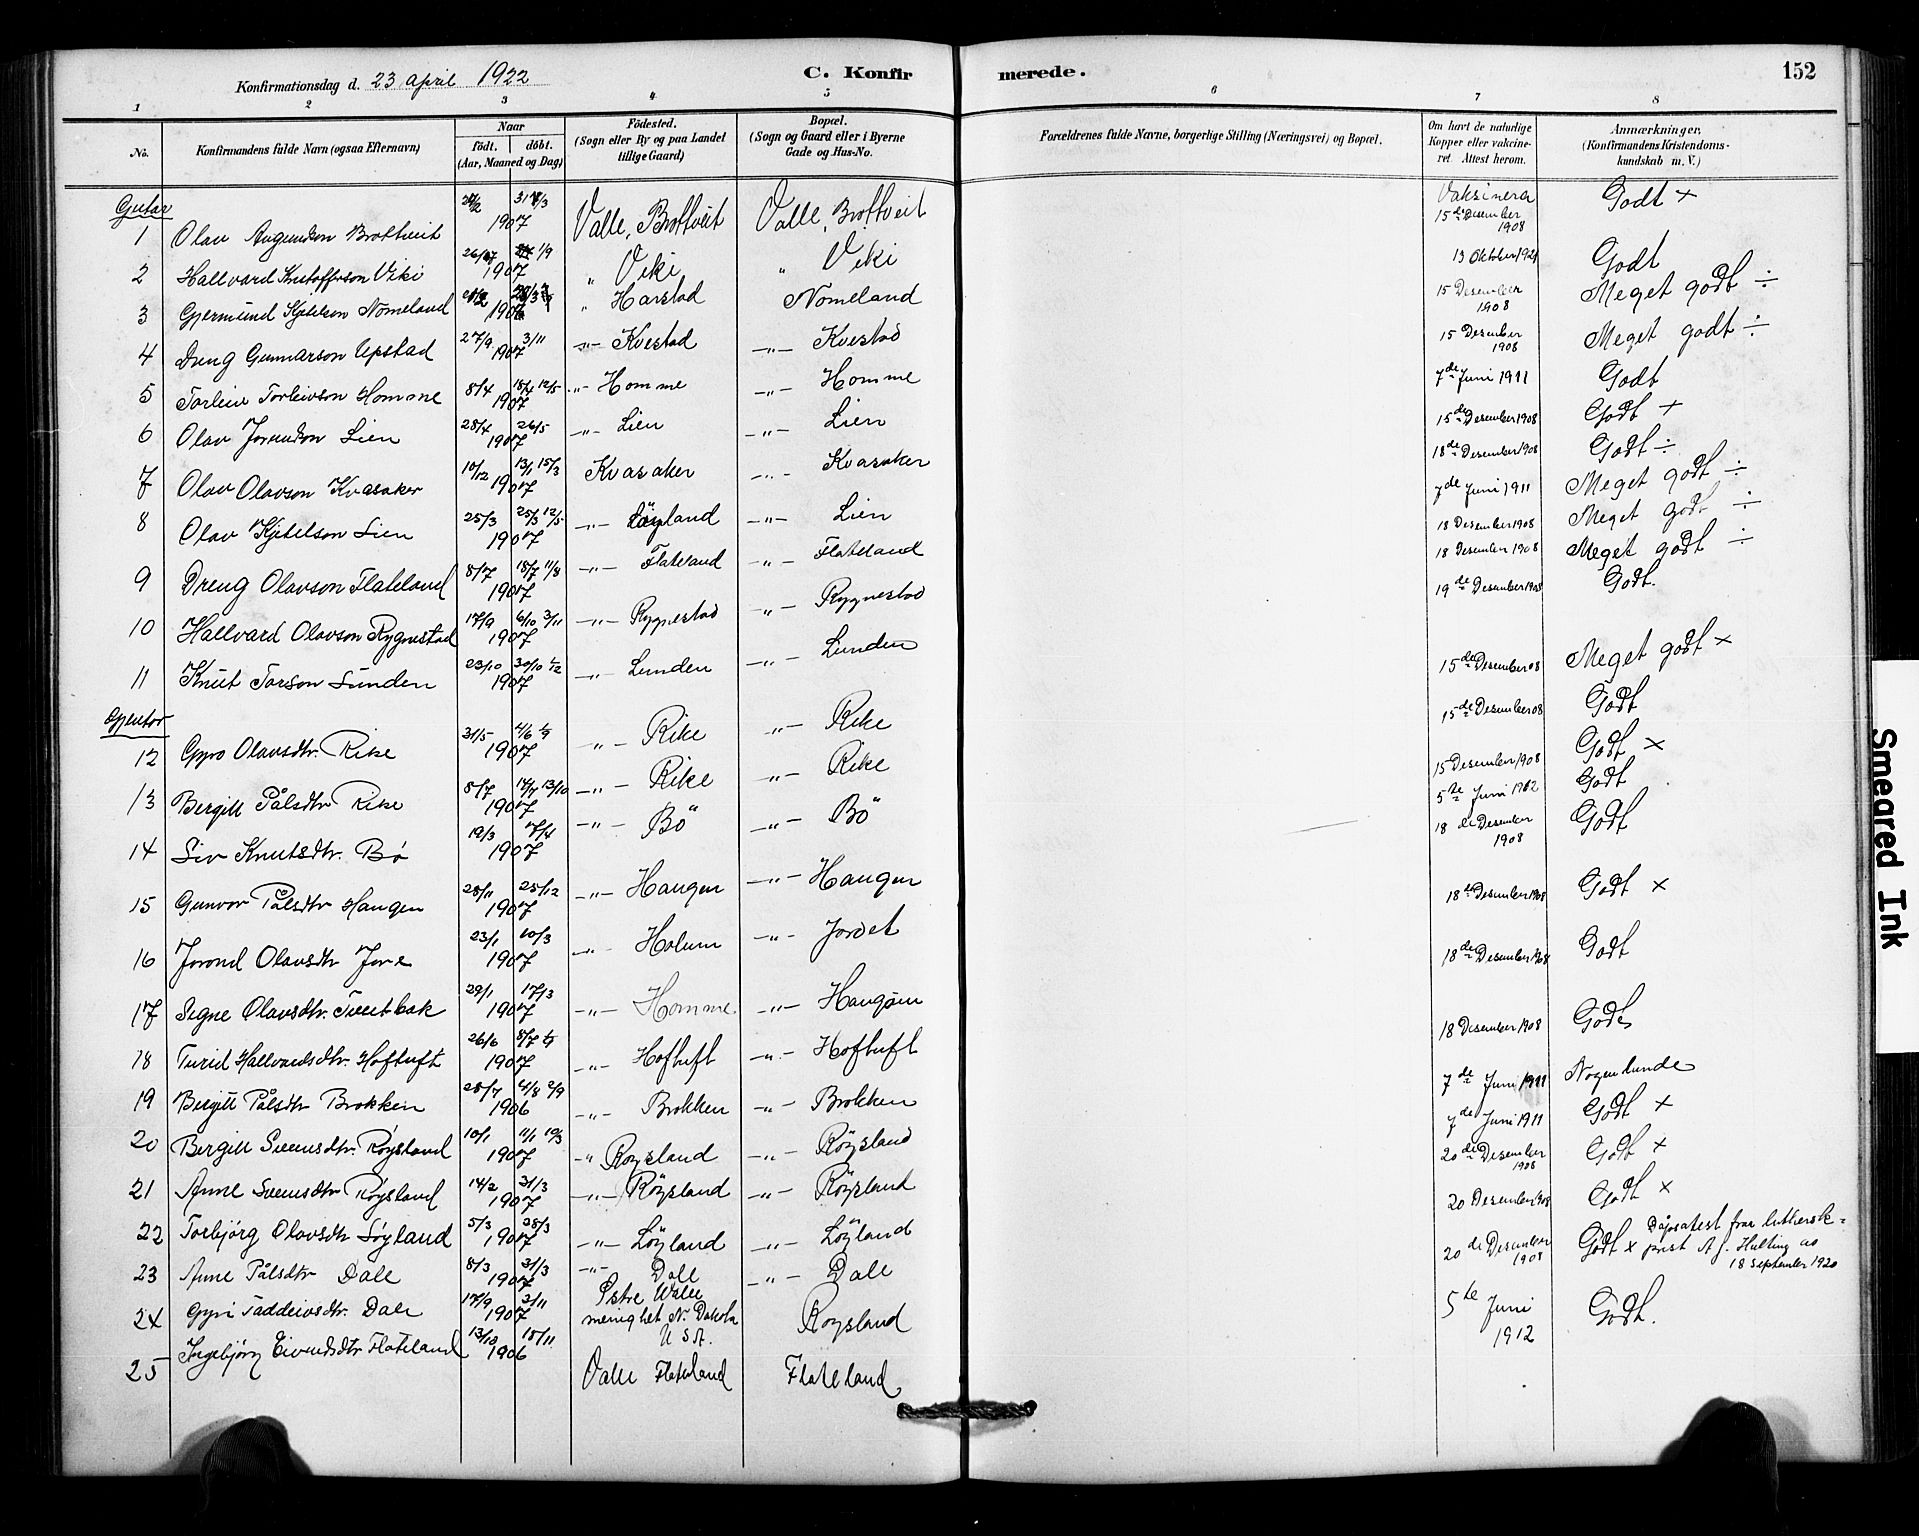 Konfirmationsdag d. 23 april 1922
C. Konfirmerede.
152
1 2 3 4 5 6 7 8
No.
Konfirmandens fulde Navn (ogsaa Efternavn)
Naar
födt. döbt.
(Aar, Maaned og Dag)
Födested.
(Sogn eller By og paa Landet
tillige Gaard)
Bopæl.
(Sogn og Gaard eller i Byerne
Gade og Hus-No.
Forældrenes fulde Navne, borgerlige Stilling (Næringsvei) og Bopæl.
Om havt de naturlige
Kopper eller vakcine-
ret. Attest herom.
Anmærkninger,
(Konfirmandens Kristendoms-
kundskab m. V.)
Gutar
1 Olav Augundson Brottveit 1907 Valle, Brottveit Valle, Brottveit Vaksinera 15de Desember 1908 Godt ×
2 Hallvard Kristofferson Viki 1/9 1907 " Viki " Viki 13 Oktober 1921 Godt
3 Gjermund Kjetelson Nomeland " Harstad Nomeland 15 Desember 1908 Meget godt ÷
4 Dreng Gunnarson Upstad 27/9 3/11 1907 -"- Kvestad -"- Kvestad 15 Desember 1908 Meget godt ÷
5 Torleiv Torleivson Homme 8/4 18/4 12/5 1907 -"- Homme -"- Homme 7de Juni 1911 Godt
6 Olav Jorundson Lien 28/4 26/5 1907 -"- Lien -"- Lien 15de Desember 1908 Godt +
7 Olav Olavson Kvasaker 10/12 13/1 15/3 1907 Kvasaker -"- Kvasaker 18de Desember 1908 Godt ÷
8 Olav Kjetelson Lien 25/3 25/3 12/5 1907 -"- Löyland -"- Lien 7de Juni 1911 Meget godt ÷
9 Dreng Olavson Flateland 8/7 18/7 11/8 1907 -"- Flateland -"- Flateland 18 Desember 1908 Meget godt ÷
10 Hallvard Olavson Rygnestad 17/9 6/10 3/11 1907 -"- Rygnestad -"- Rygnestad 18 Desember 1908 Meget godt ÷
11 Knut Torson Lunden 23/10 30/10 1/12 1907 -"- Lunden -"- Lunden 19de Desember 1908 Godt.
Gjentor
12 Gyro Olavsdtr. Rike 31/5 4/6 1907 "- Rike "- Rike 15de Desember 08 Meget godt ×
13 Bergitt Pålsdtr Rike 8/7 14/7 13/10 1907 -"- Rike "- Rike 15de Desember 08 Godt
14 Siv Knutsdtr. Bø 12/3 7/4 1907 -"- Bö -"- Bö 15 Desember 1908 Godt ×
15 Gunvor Pålsdtr Haugen 28/11 25/12 1907 -"- Haugen -"- Haugen 5te Juni 1912 Godt
16 Jorond Olavsdtr Jore 23/1 10/3 1907 -"- Holum -"- Jordet 18de Desember 1908 Godt
17 Signe Olavsdtr. Tveitbak 29/1 17/3 1907 -"- Homme -"- Haugom 18de Desember 1908 Godt ×
18 Turid Hallvardsdtr Hoftuft 26/6 8/7 1907 -"- Hoftuft -"- Hoftuft 18de Desember 1908 Godt
19 Birgitt Pålsdtr Brokken 28/7 4/8 2/9 1906 -"- Brokken -"- Brokken 18 Desember 1908 Godt
20 Bergitt Sveinsdtr. Røysland 10/1 11/1 10/3 1907 " Roysland -"- Röysland 7de Juni 1911 Nogenlunde
21 Anne Sveinsdtr Røysland 14/2 31/3 1907 -"- Röysland -"- Röysland 7de Juni 1911 Godt ×
22 Torbjørg Olavsdtr Løyland 5/3 28/3 1907 -"- Löyland -"- Löyland 20de Desember 1908 Godt ×
23 Anne Pålsdtr Dale 8/3 31/3 1907 -"- Dale -"- Dale 20 Desember 1908 Godt ×
24 Gyri Taddeivsdtr. Dale 17/9 3/11 1907 Östre Walle menighet N. Dakota U S A. Roysland 20de Desember 1908 Godt × Dåpsatest frar luthersk prest A J. Hulting av 18 September 1920
25 Ingebjörg Eivindsdtr Flateland 13/10 15/11 1906 Valle Flateland Flateland 5te Juni 1912 Godt.
Smeared Ink